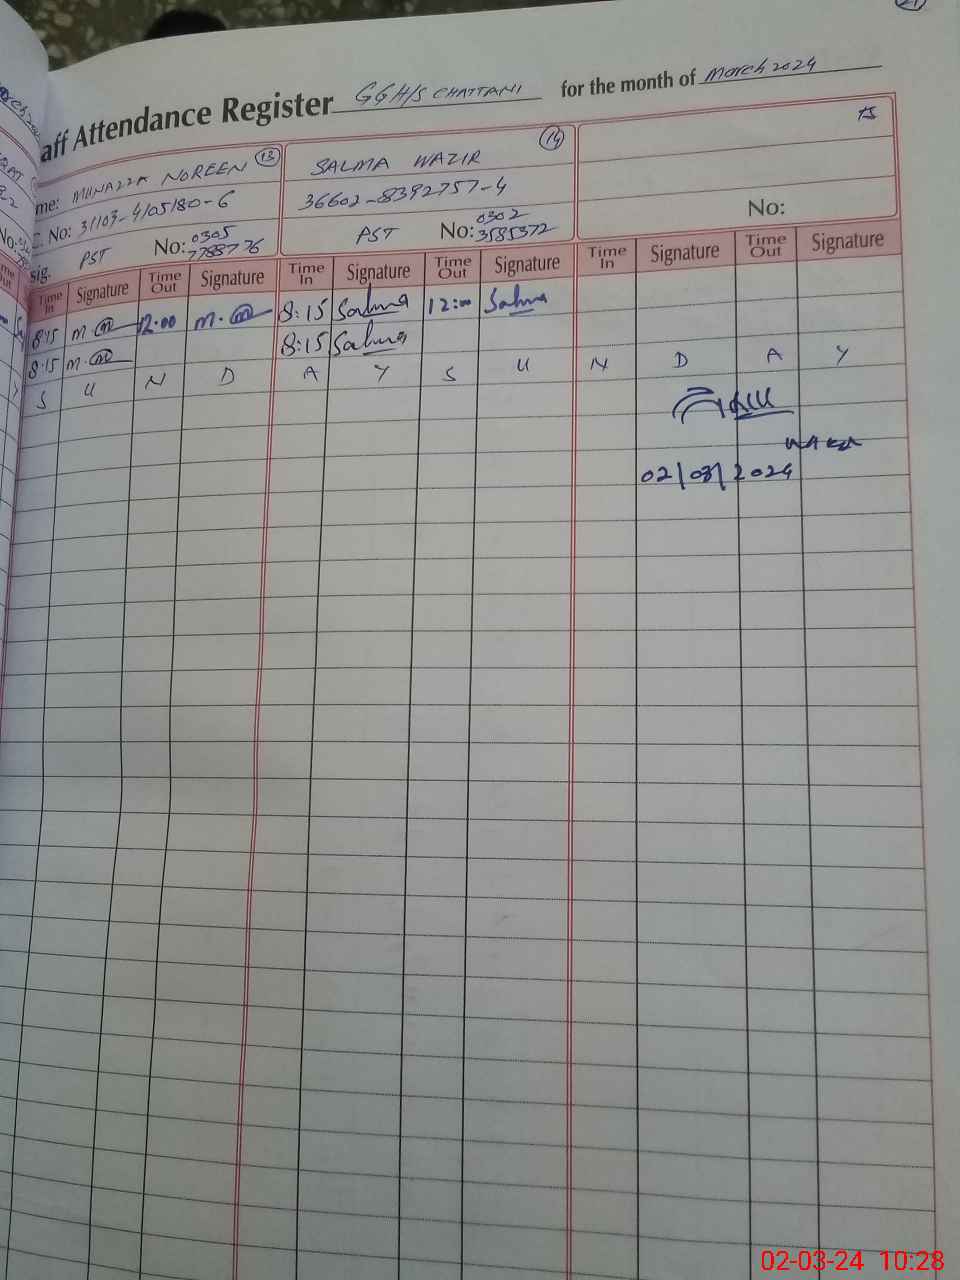 aff Attendance Register GGH/S CHATTANI for the month of March 2024
me: MUNAZZA NOREEN 13
C. No: 31103-4105180-6
sig. PST No: 0305 7788776
SALMA WAZIR 14
36602-8392757-4
PST No: 0302 3585372
15
No:
Time In Signature Time Out Signature Time In Signature Time Out Signature Time In Signature Time Out Signature
8:15 12:00 8:15 Salma 12:00 Salma
8:15 8:15 Salma
S U N D A Y S U N D A Y
02/03/2024
02-03-24 10:28